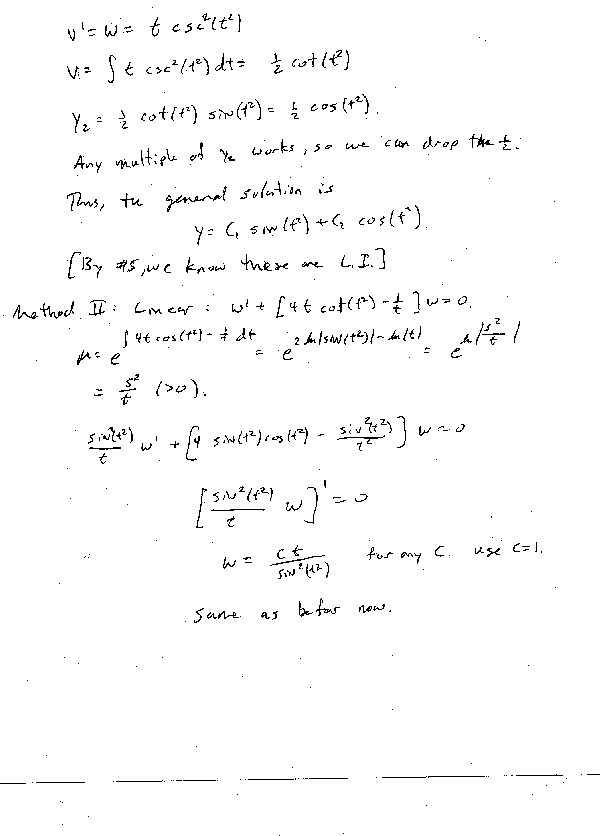 v' = w = t csc²(t²)
v = ∫ t csc²(t²) dt = ½ cot(t²)
Y₂ = ½ cot(t²) sin(t²) = ½ cos(t²).
Any multiple of Y₂ works, so we can drop the ½.
Thus, the general solution is
y = C₁ sin(t²) + C₂ cos(t²).
[By #5, we know these are L.I.]
Method II: Linear: w' + [4t cot(t²) - 1/t] w = 0.
μ = e^{∫ 4t cos(t²) - 1/t dt} = e^{2 ln|sin(t²)| - ln(t)} = e^{ln|s²/t|}
= s²/t (>0).
sin²(t²)/t w' + [4 sin(t²) cos(t²) - sin²(t²)/t²] w = 0
[sin²(t²)/t w]' = 0
w = ct/sin²(t²) for any C. use C=1.
Same as before now.